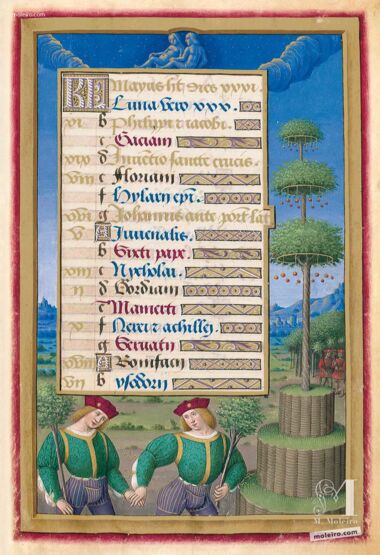 moleiro.com
KL Mayus hit dies xxxi.
Luna vero xxx.
xi b Philippi et iacobi.
c Gaciani
xix d Inventio sancte crucis.
viii e Floriani
f Hylarii epi.
xvi g Johannis ante port lat
v A Iuvenalis.
b Sixti pape.
xiii c Nycholai.
ii d Gordiani
e Mamerti
x f Nerei et achillei
g Servatii
xviii A Bonifacii
vii b ysidorii
M
M. Moleiro
moleiro.com